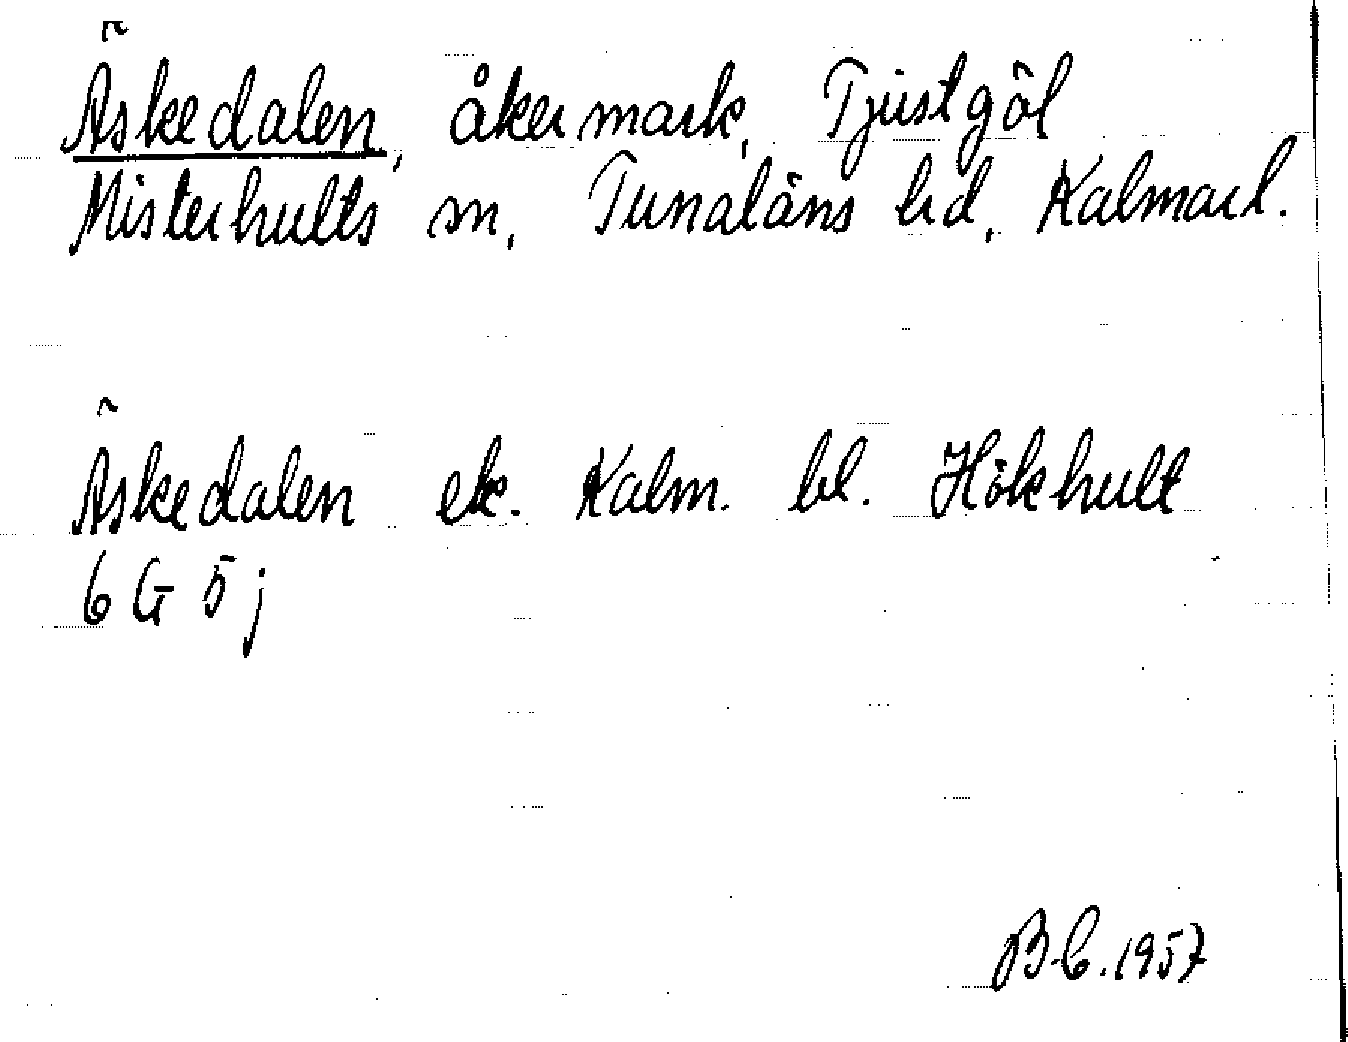 Äskedalen, åkermark, Tjustgöl
Misterhults sn, Tunaläns hd, Kalmar l.
Äskedalen ek. Kalm. bl. Hökhult
6 G 5 j
B.C. 1957